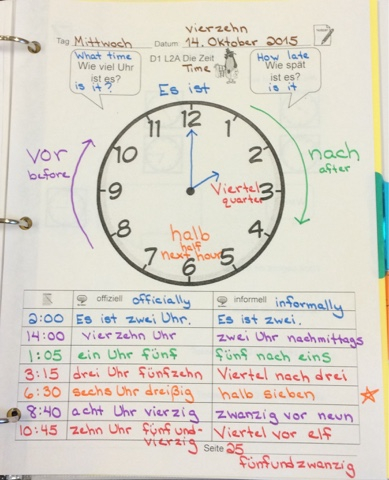 vierzehn
Tag Mittwoch Datum: 14. Oktober 2015
D1 L2A Die Zeit
Time
What time
Wie viel Uhr
ist es?
is it?
How late
Wie spät
ist es?
is it
Es ist
12
1
2
3
4
5
6
7
8
9
10
11
vor
before
nach
after
Viertel
quarter
halb
half
next hour
offiziell officially informell informally
2:00 Es ist zwei Uhr. Es ist zwei.
14:00 vierzehn Uhr zwei Uhr nachmittags
1:05 ein Uhr fünf fünf nach eins
3:15 drei Uhr fünfzehn Viertel nach drei
6:30 sechs Uhr dreißig halb sieben
8:40 acht Uhr vierzig zwanzig vor neun
10:45 zehn Uhr fünfund-vierzig Viertel vor elf
Seite 25
fünfundzwanzig